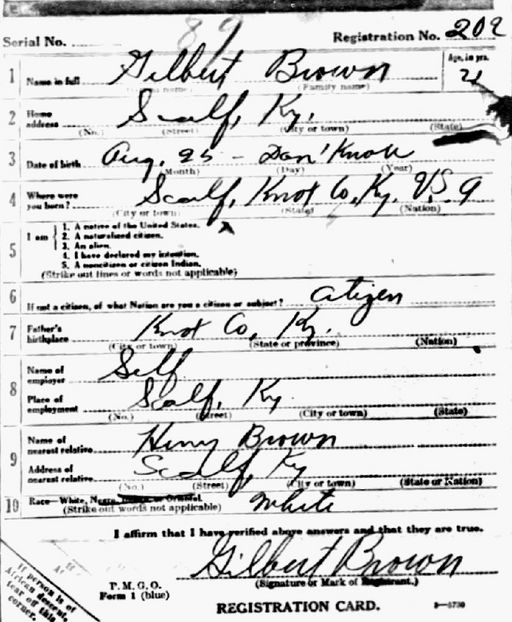 Serial No. 89 Registration No. 202
1 Name in full Gilbert Brown Age, in yrs. 21
(Family name)
2 Home address Scalf, Ky.
(No.) (Street) (City or town) (State)
3 Date of birth Aug. 25 - Don' Know
(Month) (Day) (Year)
4 Where were you born? Scalf, Knox Co, Ky. U.S. A
(City or town) (State) (Nation)
5 I am
1. A native of the United States.
2. A naturalized citizen.
3. An alien.
4. I have declared my intention.
5. A noncitizen or citizen Indian.
(Strike out lines or words not applicable)
6 If not a citizen, of what Nation are you a citizen or subject? Citizen
7 Father's birthplace Knox Co, Ky.
(City or town) (State or province) (Nation)
8 Name of employer Self
Place of employment Scalf, Ky
(No.) (Street) (City or town) (State)
9 Name of nearest relative Henry Brown
Address of nearest relative Scalf, Ky
(No.) (Street) (City or town) (State or Nation)
10 Race—White, Negro, Indian, or Oriental. White
(Strike out words not applicable)
I affirm that I have verified above answers and that they are true.
Gilbert Brown
P. M. G. O. (Signature or Mark of Registrant.)
Form 1 (blue)
REGISTRATION CARD. 3—5730
If person is of
African descent,
tear off this
corner.